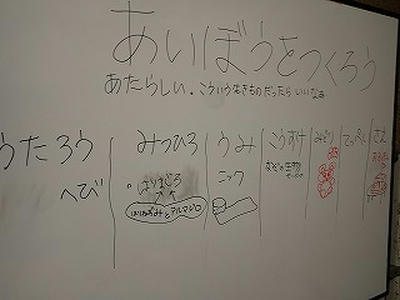 あいぼうをつくろう
あたらしい。こういう生きものだったらいいなぁ
うたろう
へび
みつひろ
はりまじろ
はりねずみとアルマジロ
うみ
ニック
こうすけ
なぞの生物
みどり
てっぺい
さえ